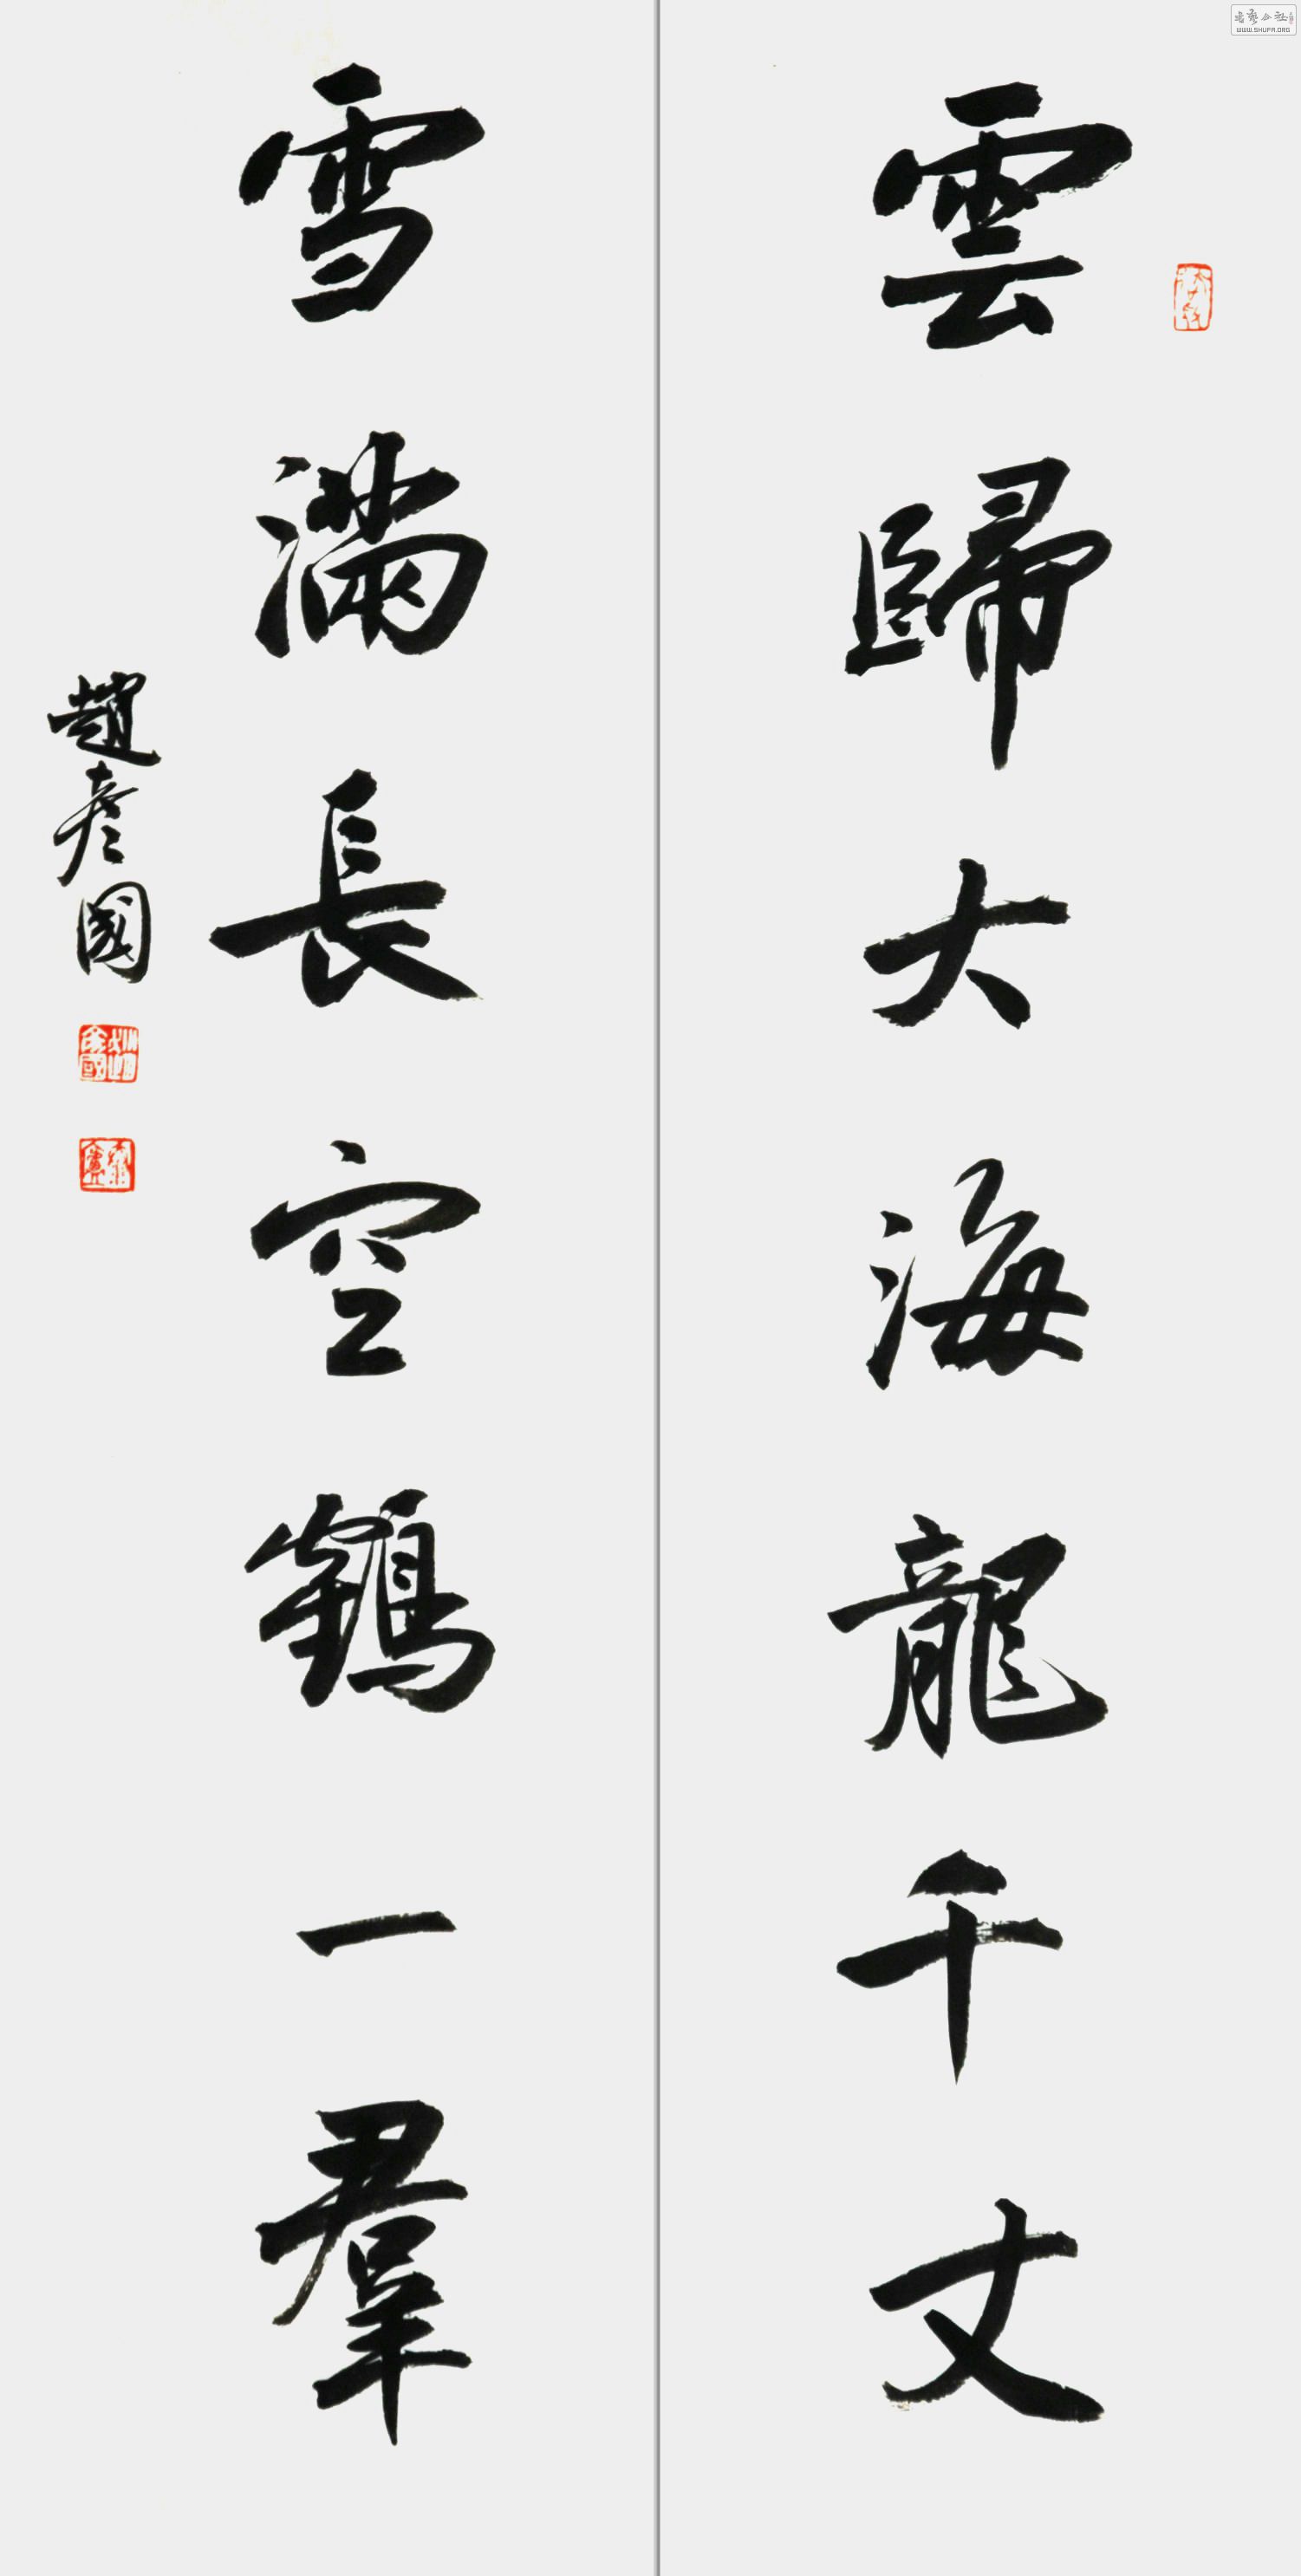 雲歸大海龍千丈
雪滿長空鶴一羣
趙彥國
WWW.SHUFA.ORG